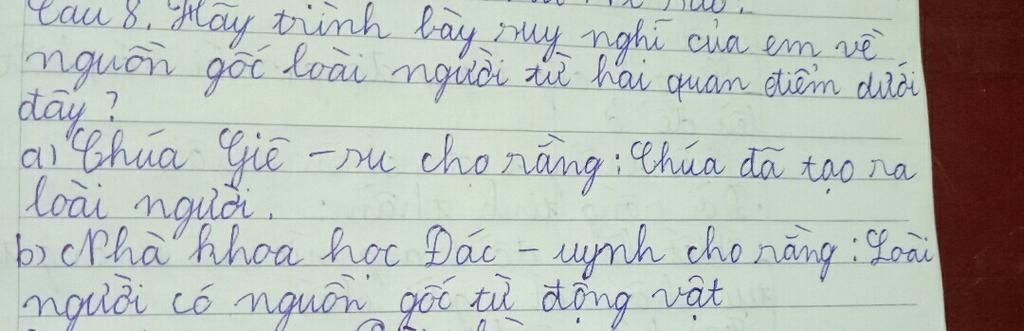 Câu 8. Hãy trình bày suy nghĩ của em về
nguồn gốc loài người từ hai quan điểm dưới
đây?
a) Chúa Giê - su cho rằng: Chúa đã tạo ra
loài người.
b) Nhà khoa học Đác - uynh cho rằng: Loài
người có nguồn gốc từ động vật